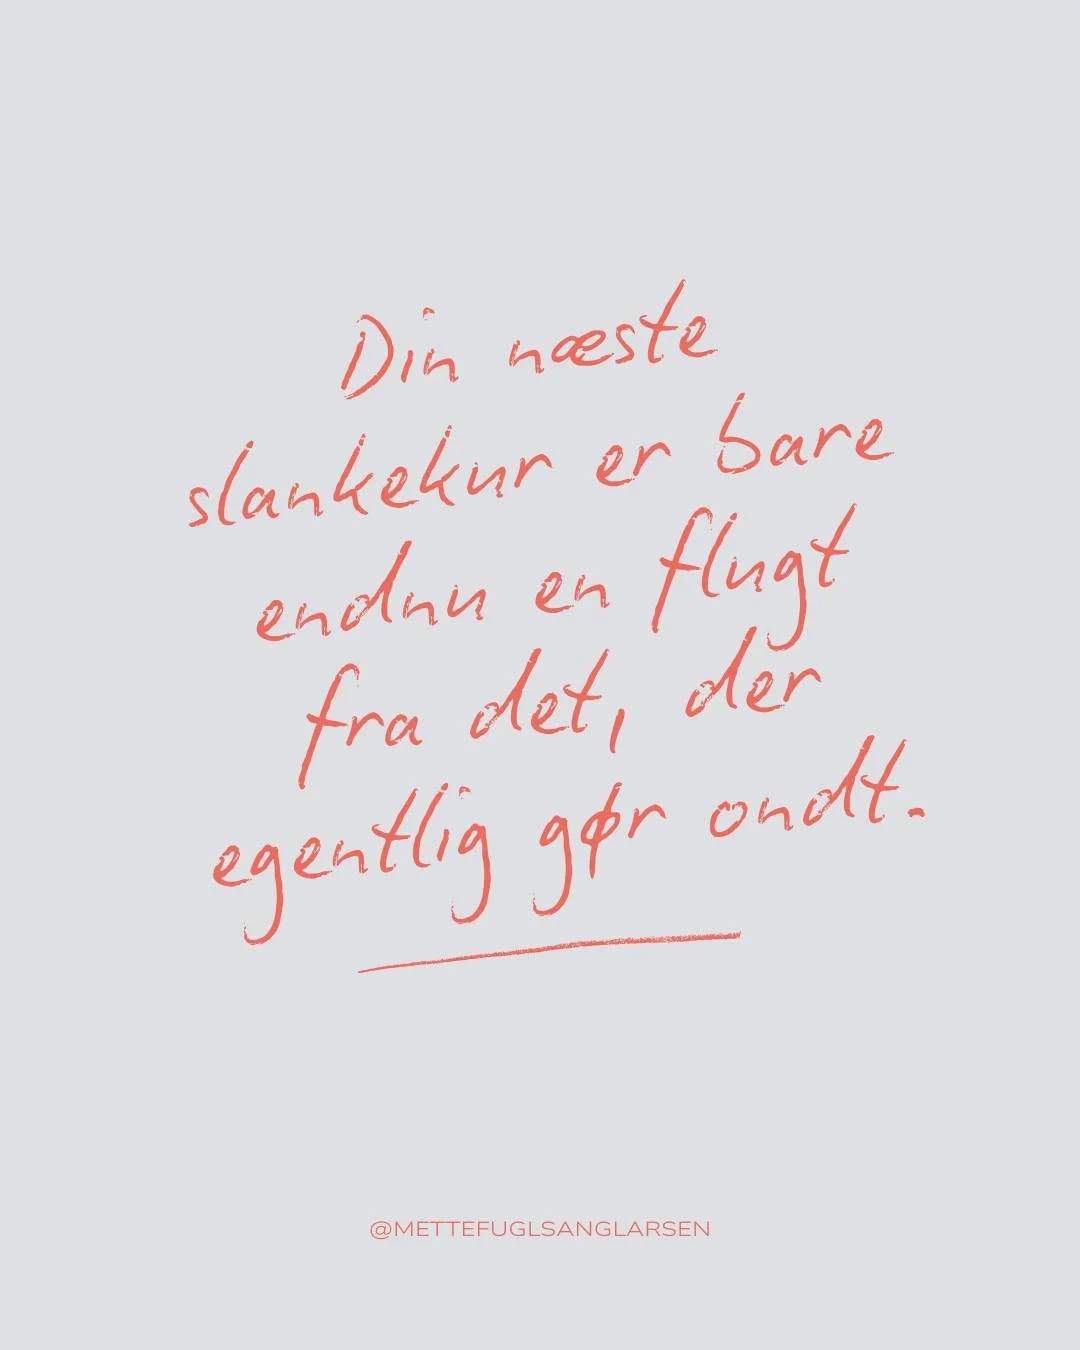 Din næste
slankekur er bare
endnu en flugt
fra det, der
egentlig gør ondt.
@METTEFUGLSANGLARSEN